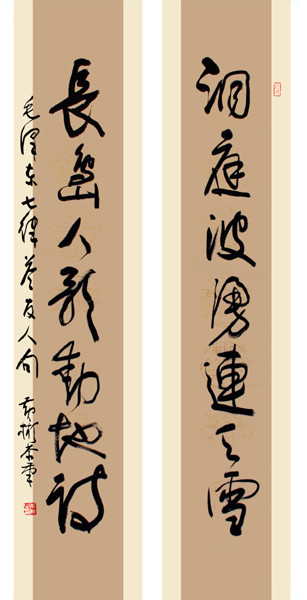 洞庭波涌連天雪
長島人歌動地詩
毛澤东七律答友人句